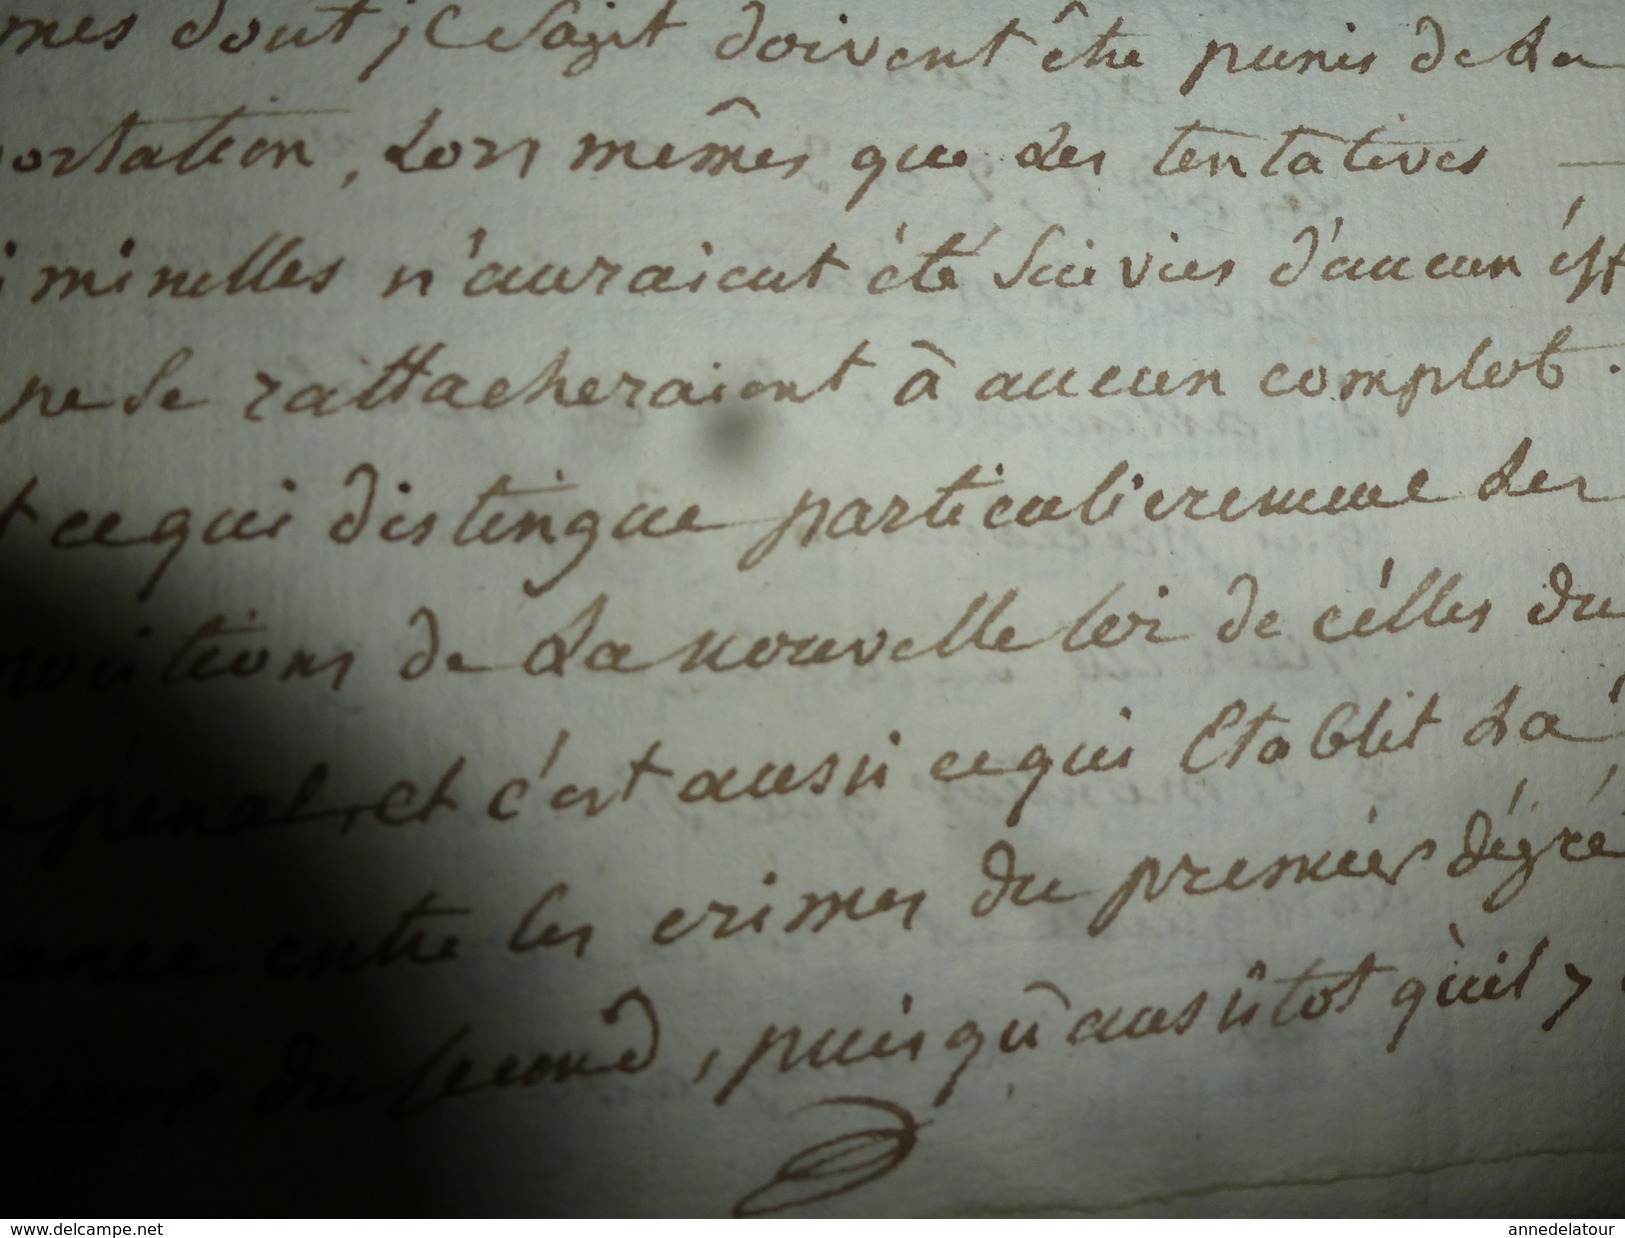 mes dont il s'agit doivent être punis de la
ortation, Lors mêmes que des tentatives
iminelles n'auraient été suivies d'aucun éff
ne se rattacheraient à aucun complot.
t ce qui distingue particulierement les
ositions de la nouvelle loi de célles du
pénal, et c'est aussi ce qui Etablit la
ance entre les crimes du premièr dégré
ceux du second, puisqu'aussitot qu'il y
www.delcampe.net
annedelatour